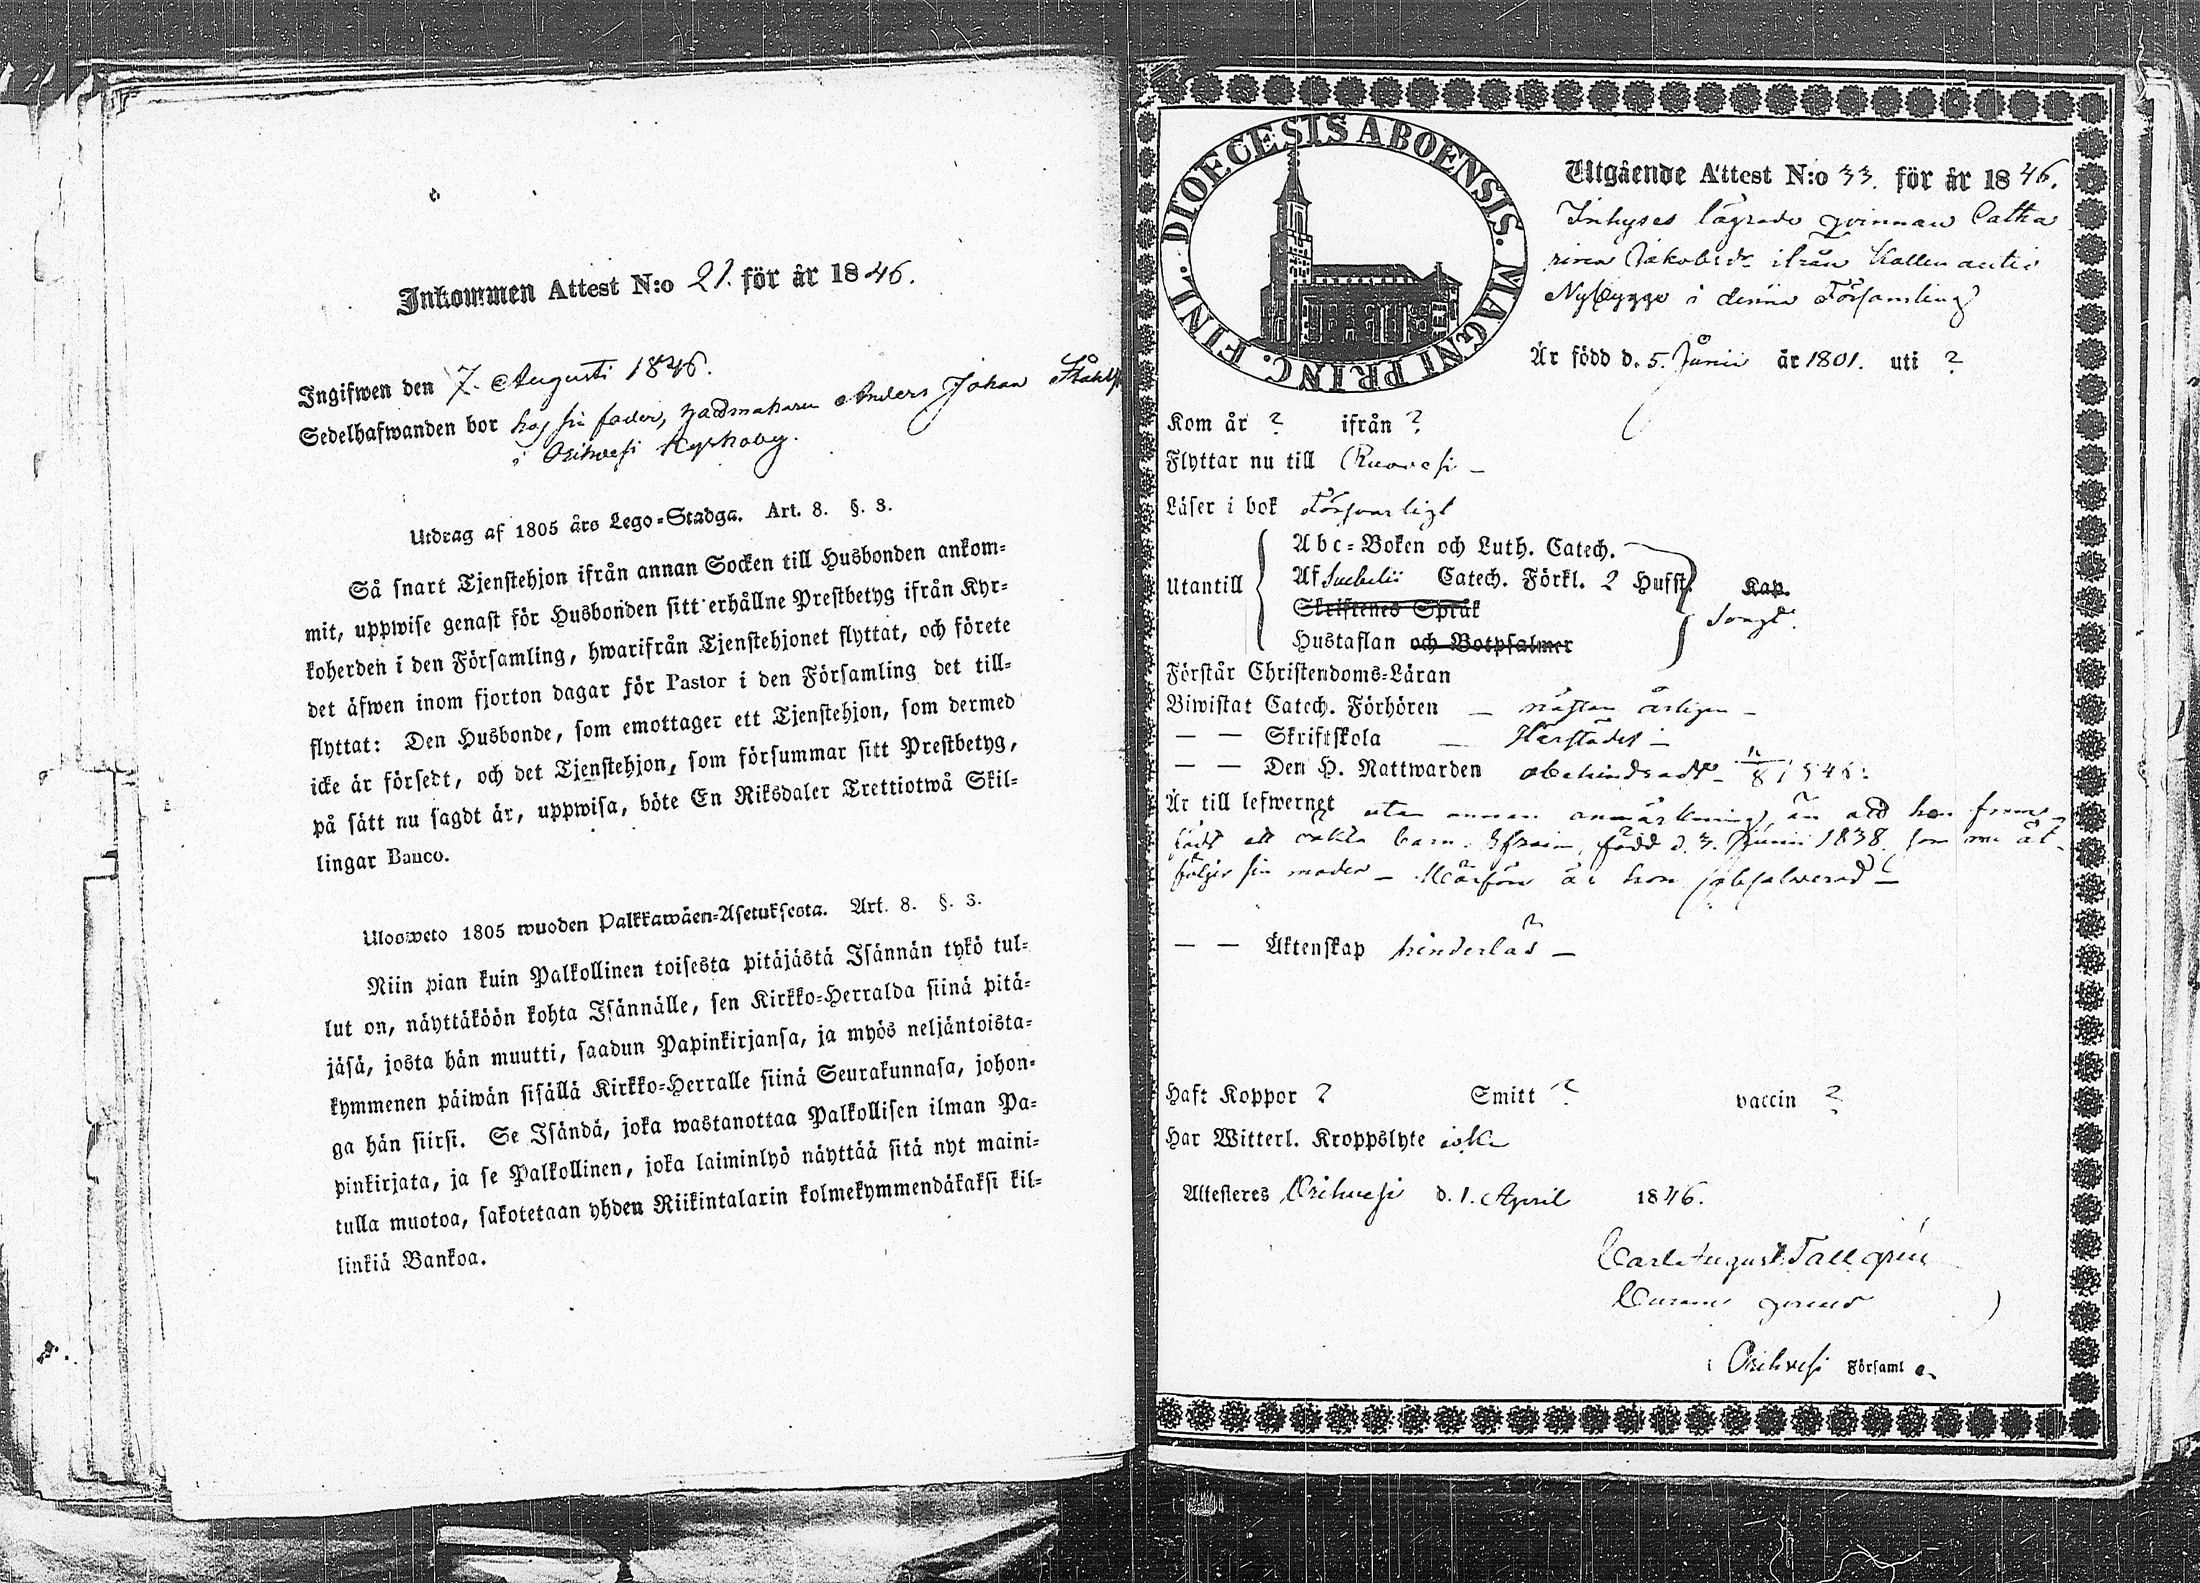 Inkommen Attest N:o 21. för år 1846.
Ingifwen den 7. Augusti 1846.
Sedelhafwanden bor hos sin fader, Anders Johan
i Orihvesi Kyrkoby.
Utdrag af 1805 års Lego-Stadga. Art. 8. §. 3.
Så snart Tjenstehjon ifrån annan Socken till Husbonden ankom-
mit, uppwise genast för Husbonden sitt erhållne Prestbetyg ifrån Kyr-
koherden i den Församling, hwarifrån Tjenstehjonet flyttat, och förete
det äfwen inom fjorton dagar för Pastor i den Församling det till-
flyttat: Den Husbonde, som emottager ett Tjenstehjon, som dermed
icke är försedt, och det Tjenstehjon, som försummar sitt Prestbetyg,
på sätt nu sagdt är, uppwisa, böte En Riksdaler Trettiotwå Skil-
lingar Banco.
Ulosweto 1805 wuoden Palkkawäen-Asetuksesta. Art. 8. §. 3.
Niin pian kuin Palkollinen toisesta pitäjästä Isännän tykö tul-
lut on, näyttäköön kohta Isännälle, sen Kirkko-Herralda siinä pitä-
jäsä, josta hän muutti, saadun Papinkirjansa, ja myös neljäntoista-
kymmenen päiwän sisällä Kirkko-Herralle siinä Seurakunnasa, johon-
ga hän siirsi. Se Isändä, joka wastanottaa Palkollisen ilman Pa-
pinkirjata, ja se Palkollinen, joka laiminlyö näyttää sitä nyt maini-
tulla muotoa, sakotetaan yhden Riikintalarin kolmekymmendäkaksi kil-
linkiä Bankoa.
DIOECESIS ABOENSIS. MAGNI PRINC. FINL.
Utgående Attest N:o 33. för år 1846.
Inhyses lägrade qvinnan Catha
rina Jakobsdr ifrån
Nybygge i denna Församling
Är född d. 5. Junii år 1801. uti ?
Kom år ? ifrån ?
Flyttar nu till Ruovesi –
Läser i bok Försvarligt
Utantill
Abc-Boken och Luth. Catech.
Af Svebelii Catech. Förkl. 2 Hufst. Kap.
Skriftenes Språk
Hustaflan och Botpsalmer
Svagt.
Förstår Christendoms-Läran
Biwistat Catech. Förhören – nästan årligen –
– – Skriftskola –
– – Den H. Nattwarden obehindradt
Är till lefwernet utan annan anmärkning, än att hon fram-
födt ett oäkta barn, Efraim, född d. 3. Junii 1838. som nu åt-
följer sin moder – Härföre är hon
– – Äktenskap hinderlös –
Haft Koppor ? Smitt ? vaccin ?
Har Witterl. Kroppslyte icke
Attesteres Orihvesi d. 1. April 1846.
Carl August Tallgrén
i Orihvesi Församl